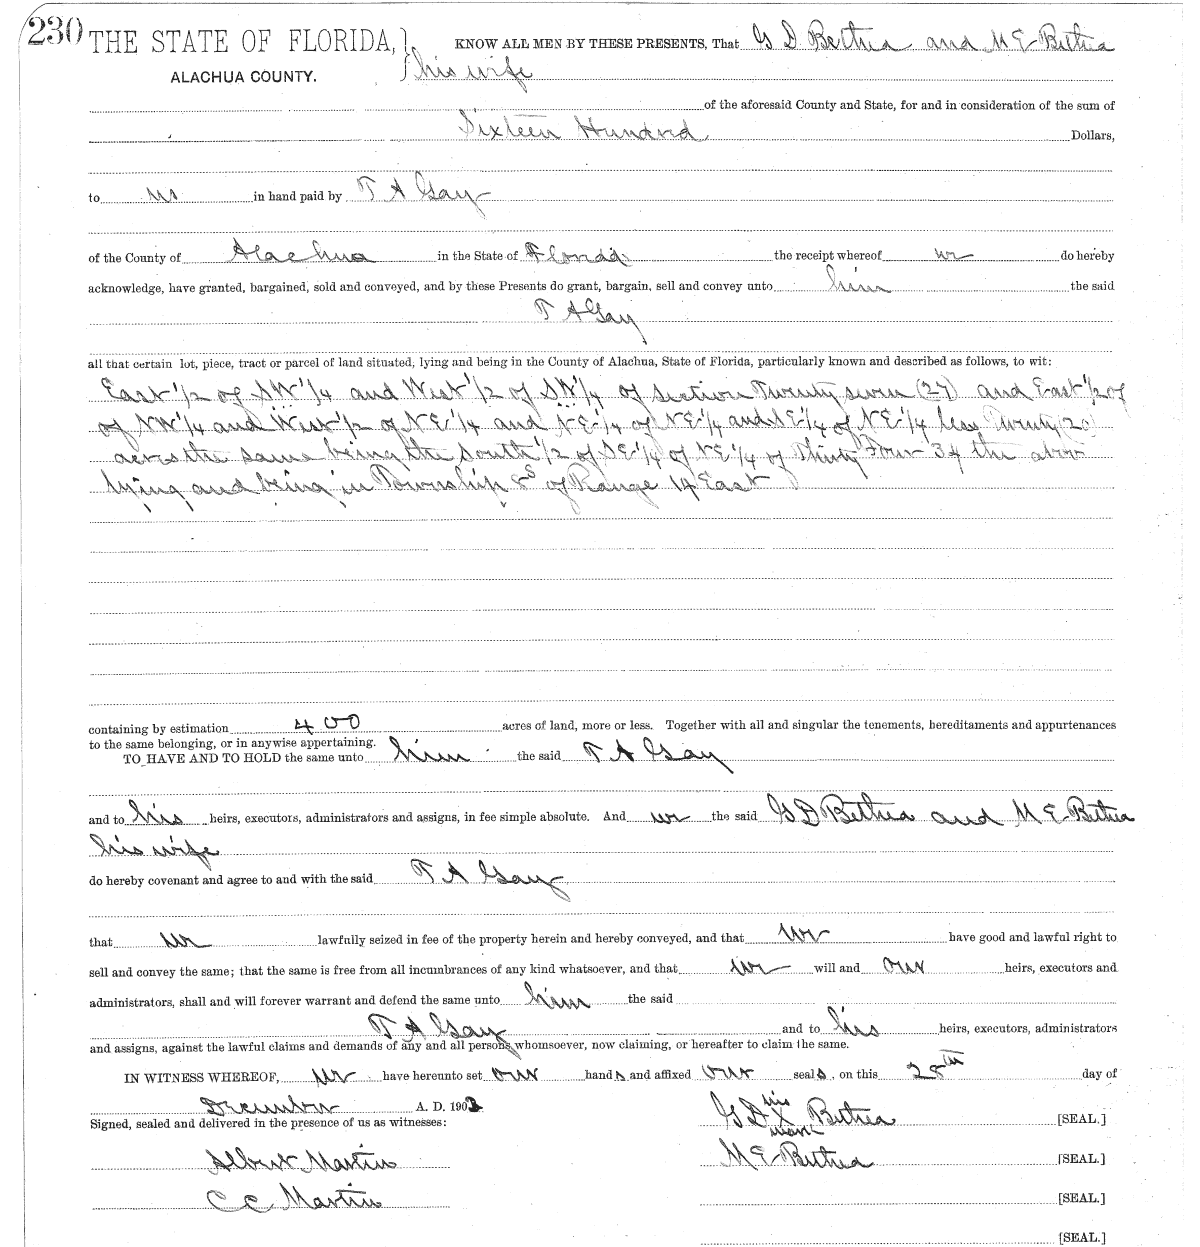 230 THE STATE OF FLORIDA, } KNOW ALL MEN BY THESE PRESENTS, That G D Bethea and M E Bethea
ALACHUA COUNTY. his wife
of the aforesaid County and State, for and in consideration of the sum of
Sixteen Hundred Dollars,
to us in hand paid by T A Gay
of the County of Alachua in the State of Florida the receipt whereof we do hereby
acknowledge, have granted, bargained, sold and conveyed, and by these Presents do grant, bargain, sell and convey unto him the said
T A Gay
all that certain lot, piece, tract or parcel of land situated, lying and being in the County of Alachua, State of Florida, particularly known and described as follows, to wit:
East 1/2 of SW 1/4 and West 1/2 of SW 1/4 of Section Twenty seven (27) and East 1/2 of
of NW 1/4 and West 1/2 of NE 1/4 and NE 1/4 of NE 1/4 and SE 1/4 of NE 1/4 less Twenty (20)
acres the same being the South 1/2 of SE 1/4 of NE 1/4 of Thirty Four 34 the above
lying and being in Township 8 S of Range 17 East
containing by estimation 400 acres of land, more or less. Together with all and singular the tenements, hereditaments and appurtenances
to the same belonging, or in anywise appertaining.
TO HAVE AND TO HOLD the same unto him the said T A Gay
and to his heirs, executors, administrators and assigns, in fee simple absolute. And we the said G D Bethea and M E Bethea
his wife
do hereby covenant and agree to and with the said T A Gay
that we lawfully seized in fee of the property herein and hereby conveyed, and that we have good and lawful right to
sell and convey the same; that the same is free from all incumbrances of any kind whatsoever, and that we will and our heirs, executors and
administrators, shall and will forever warrant and defend the same unto him the said
T A Gay and to his heirs, executors, administrators
and assigns, against the lawful claims and demands of any and all persons whomsoever, now claiming, or hereafter to claim the same.
IN WITNESS WHEREOF, we have hereunto set our hands and affixed our seals, on this 28th day of
December A. D. 1903
Signed, sealed and delivered in the presence of us as witnesses: G D his X mark Bethea [SEAL.]
Albert Martin M E Bethea [SEAL.]
C C Martin [SEAL.]
[SEAL.]